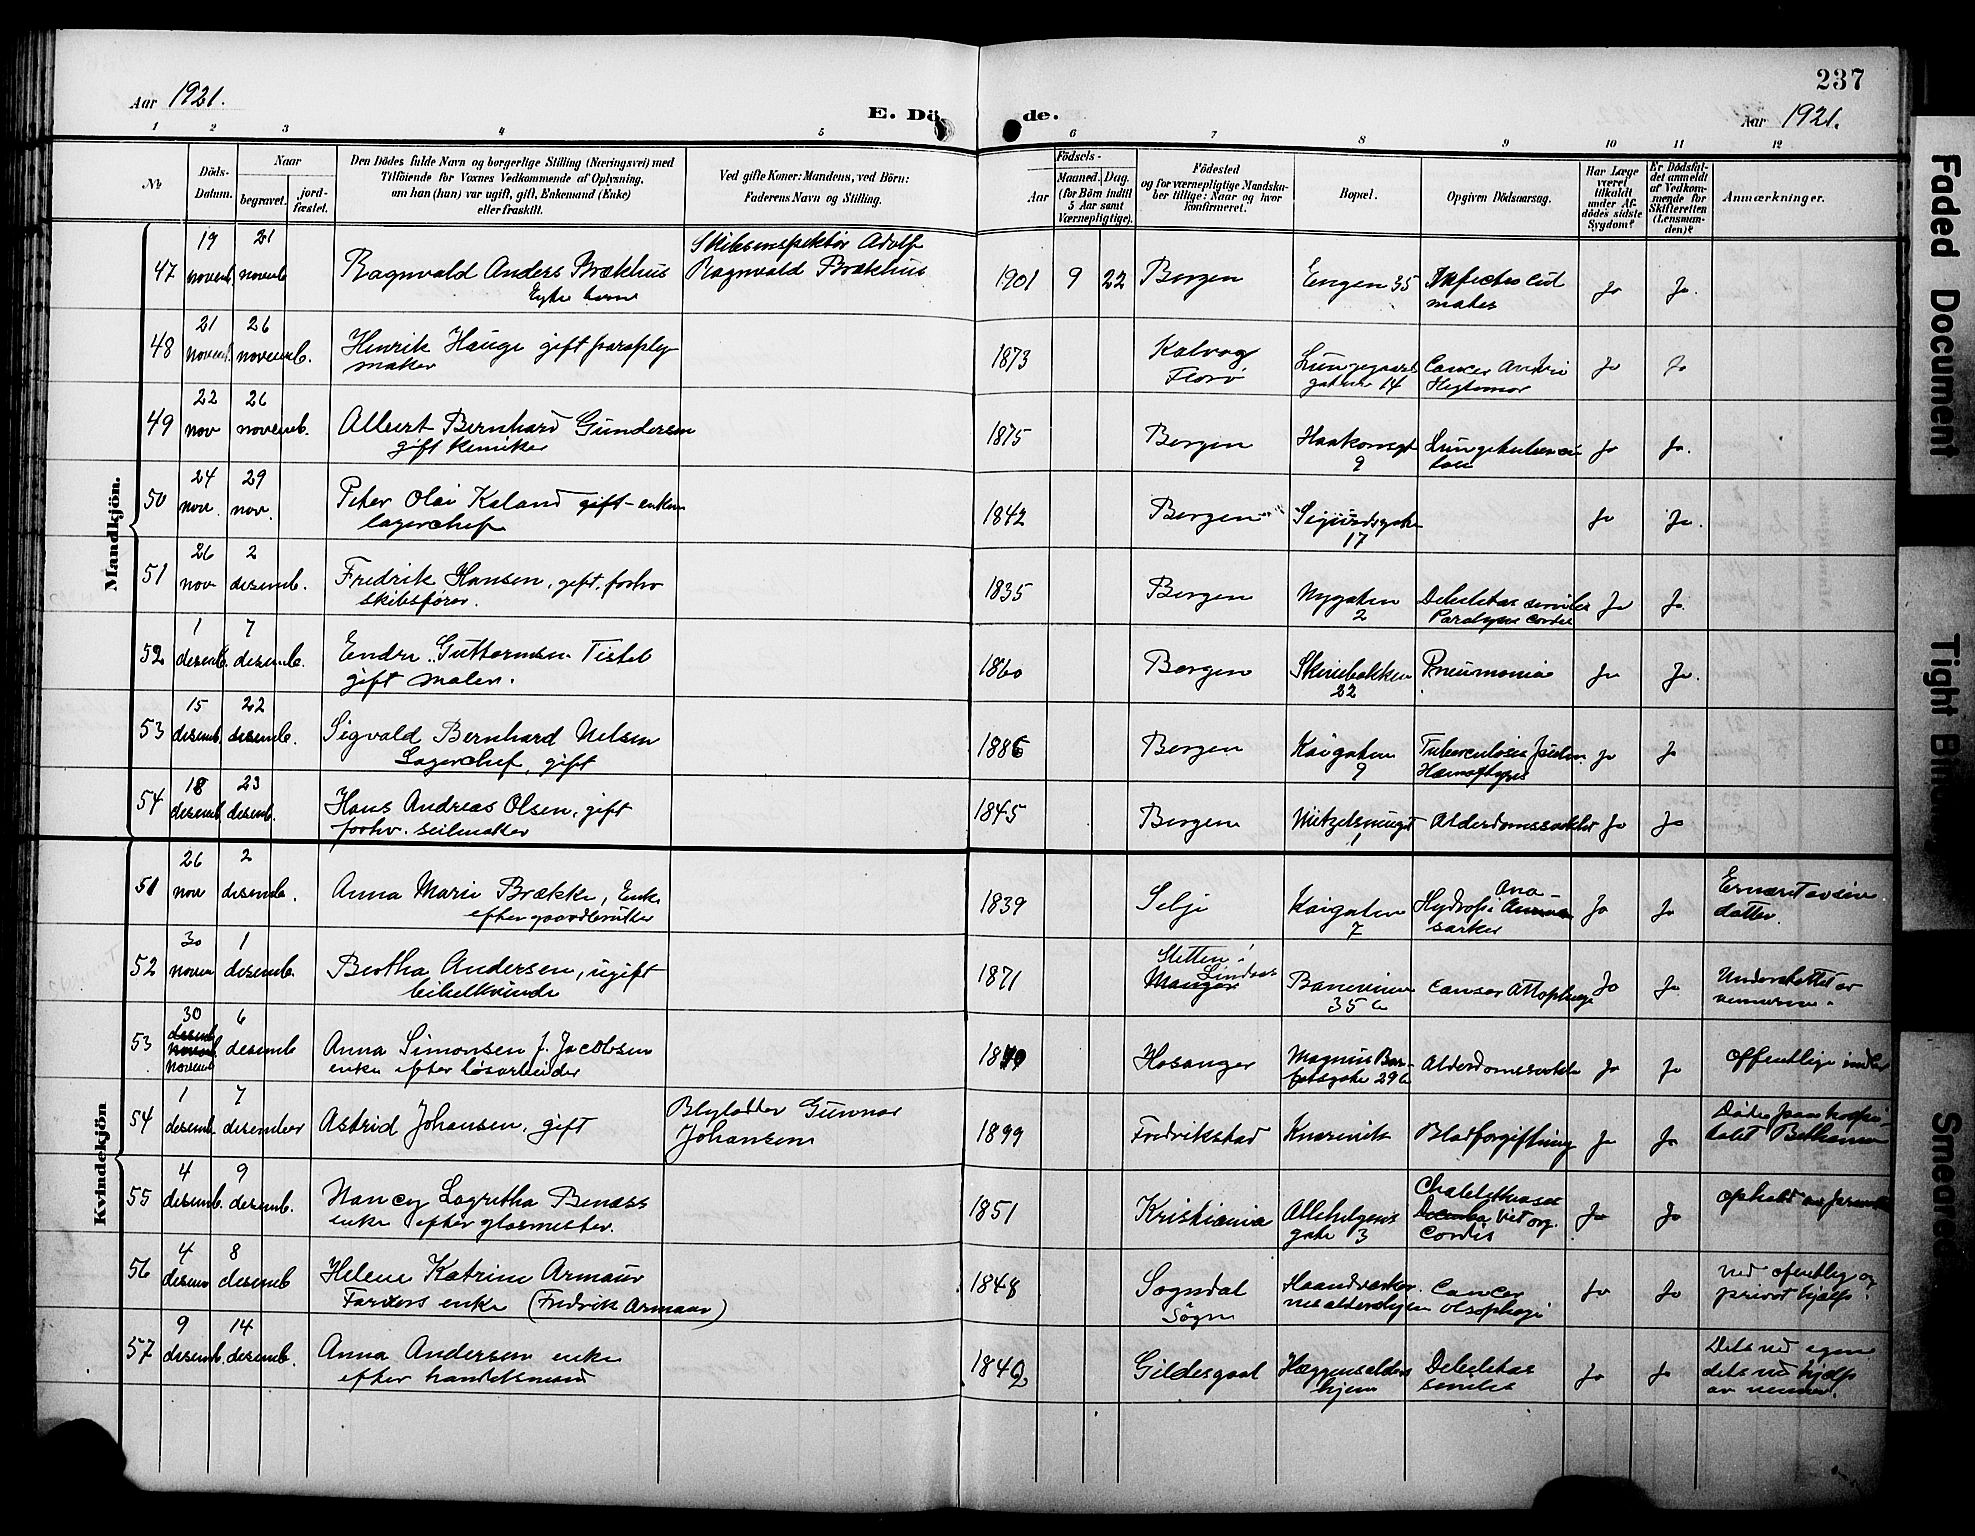 237
Aar 1921.
E. Dö de.
Aar 1921.
1 2 3 4 5 6 7 8 9 10 11 12
No
Döds-
Datum.
Naar
begravet.
jord-
fæstet.
Den Dödes fulde Navn og borgerlige Stilling (Næringsvei) med
Tilföiende for Voxnes Vedkommende af Oplysning,
om han (hun) var ugift, gift, Enkemand (Enke)
eller fraskilt.
Ved gifte Koner: Mandens, ved Börn:
Faderens Navn og Stilling.
Födsels-
Aar
Maaned.
Dag.
(for Börn indtil
5 Aar samt
Værnepligtige).
Födested
og for værnepligtige Mandska-
ber tillige: Naar og hvor
konfirmeret.
Bopæl.
Opgiven Dödsaarsag.
Har Læge
været
tilkaldt
under Af-
dödes sidste
Sygdom?
Er Dödsfal-
det anmeldt
af Vedkom-
mende for
Skifteretten
(Lensman-
den)?
Anmærkninger.
Mandkjön.
47 19 novemb. 21 novemb. Ragnvald Anders Brækhus
Skibsinspektör Adolf
Ragnvald Brækhus
1901 9 22 Bergen Engen 35 Ja Ja.
48 21 novemb. 26 novemb. Henrik Hauge gift paraply
maker
1873 Kalvag
Florö
Lungegaards
gaten 14
Cancer
Ja Ja
49 22 nov 26 novemb. Albert Bernhard Gundersen
gift kemiker
1875 Bergen Haakonsgt
9
Ja Ja.
50 24 nov. 29 nov. Peter Olai Kaland gift - enkem
lagerchef
1842 Bergen Sigurdsgate
17
Ja Ja.
51 26 nov 2 desemb. Fredrik Hansen, gift, forhv
skibsförer.
1835 Bergen Nygaten
2
Debilitas senilis
Paralyse cordis
Ja Ja.
52 1 desemb. 7 desemb. Endre Guttormsen Tistel
gift maler.
1860 Bergen Skivebakken
22
Pneumonia
Ja Ja.
53 15 desemb. 22 desemb. Sigvald Bernhard Nelsen
Lagerchef, gift
1886 Bergen Kaigaten
9
Tuberculosis pulm
Hæmoftyse
Ja Ja
54 18 desemb 23 desemb. Hans Andreas Olsen, gift
forhv. seilmaker
1845 Bergen Nitzelsmugt
1
Alderdomssvakhet Ja Ja
Kvindekjön
51 26 nov 2 desemb. Anna Marie Brække, Enke
efter gaardbruker
1839 Selje Kaigaten
7
Hydrops Ana-
sarker
Ja Ja
Ernæret av sin
datter.
52 30 novem 1 desemb. Bertha Andersen, ugift
bibelkvinde
1871 Sletten i
Manger Lindaas
35 b
Ja Ja
Understöttet av
vennerne.
53 30
desemb
novemb
novemb
6 desemb Anna Simonsen f. Jacobsen
enke efter lösarbeider
Hosanger Magnus Bar-
fotsgate 29 b
Alderdomssvakhet
Ja Ja
offentlige midler
54 1 desemb. 7 desember Astrid Johansen, gift Gunnar
Johansen
1899 Fredrikstad Knarvik Blodforgiftning Ja Ja
Döde paa hospi-
talet Bethania
55 4 desemb. 9 desemb. Nancy Lagretha Benæss
enke efter glasmester.
1851 Kristiania Allehelgens
gate 3
Vit org.
Cordis
Ja Ja
56 4 desem 8 desemb Helene Katrine Armauer
enke (Fredrik Armauer)
1848 Sogndal
Sogn
Cancer
Ja Ja
ved offentlig og
privat hjælp.
57 9 desemb. 14 desemb. Anna Andersen enke
efter handelsmand
1842 Gildesgaal
hjem
Debilitas
senilis
Ja Ja
Dels ved egne
dels ved hjælp
av venner.
Faded Document
Tight Bin
Smeared